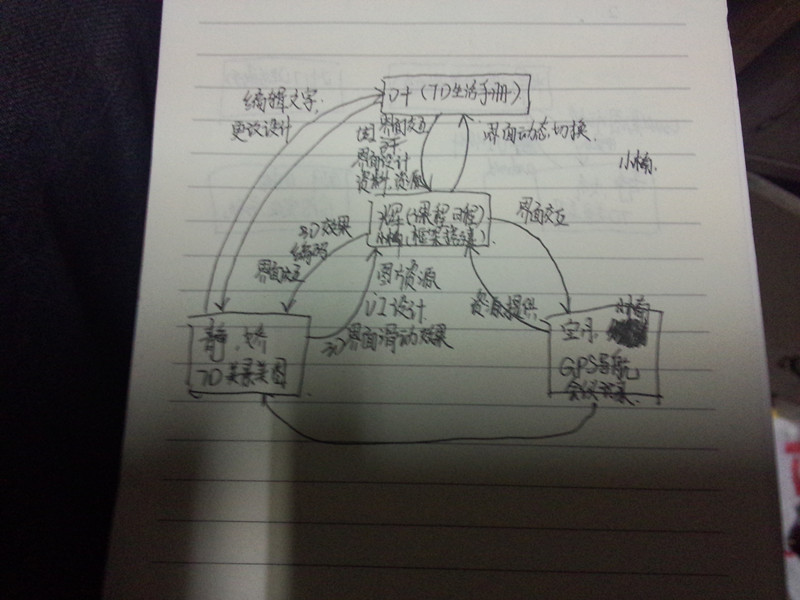 编辑文字,
更改设计
D+ (7D生活手册)
界面交互
界面设计
资料、资源
界面动态切换.
小楠.
辉 (课程日程)
小楠, 框架搭建).
界面交互
3D效果
编码
界面交互
图片资源
UI设计.
3D界面滑动效果
资源提供,
静、娇
7D美景美图
空丹,
GPS导航
会议记录.